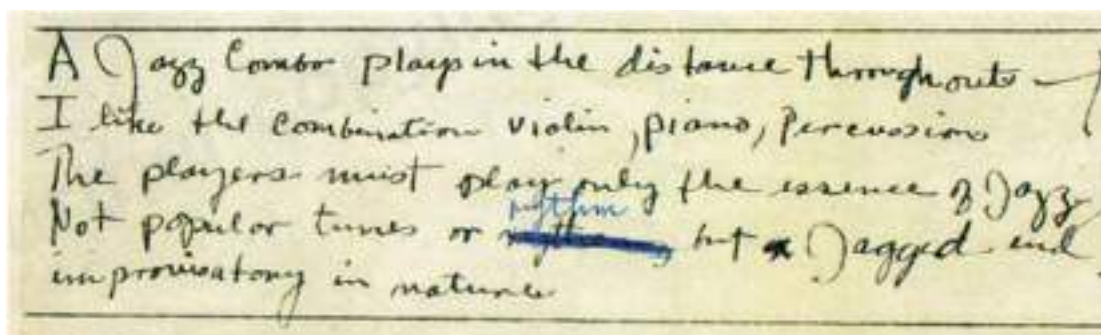 A Jazz Combo plays in the distance throughout –
I like the combination violin, piano, percussion
The players must play only the essence of Jazz
Not popular tunes or rythm but Jagged and
improvisatory in nature